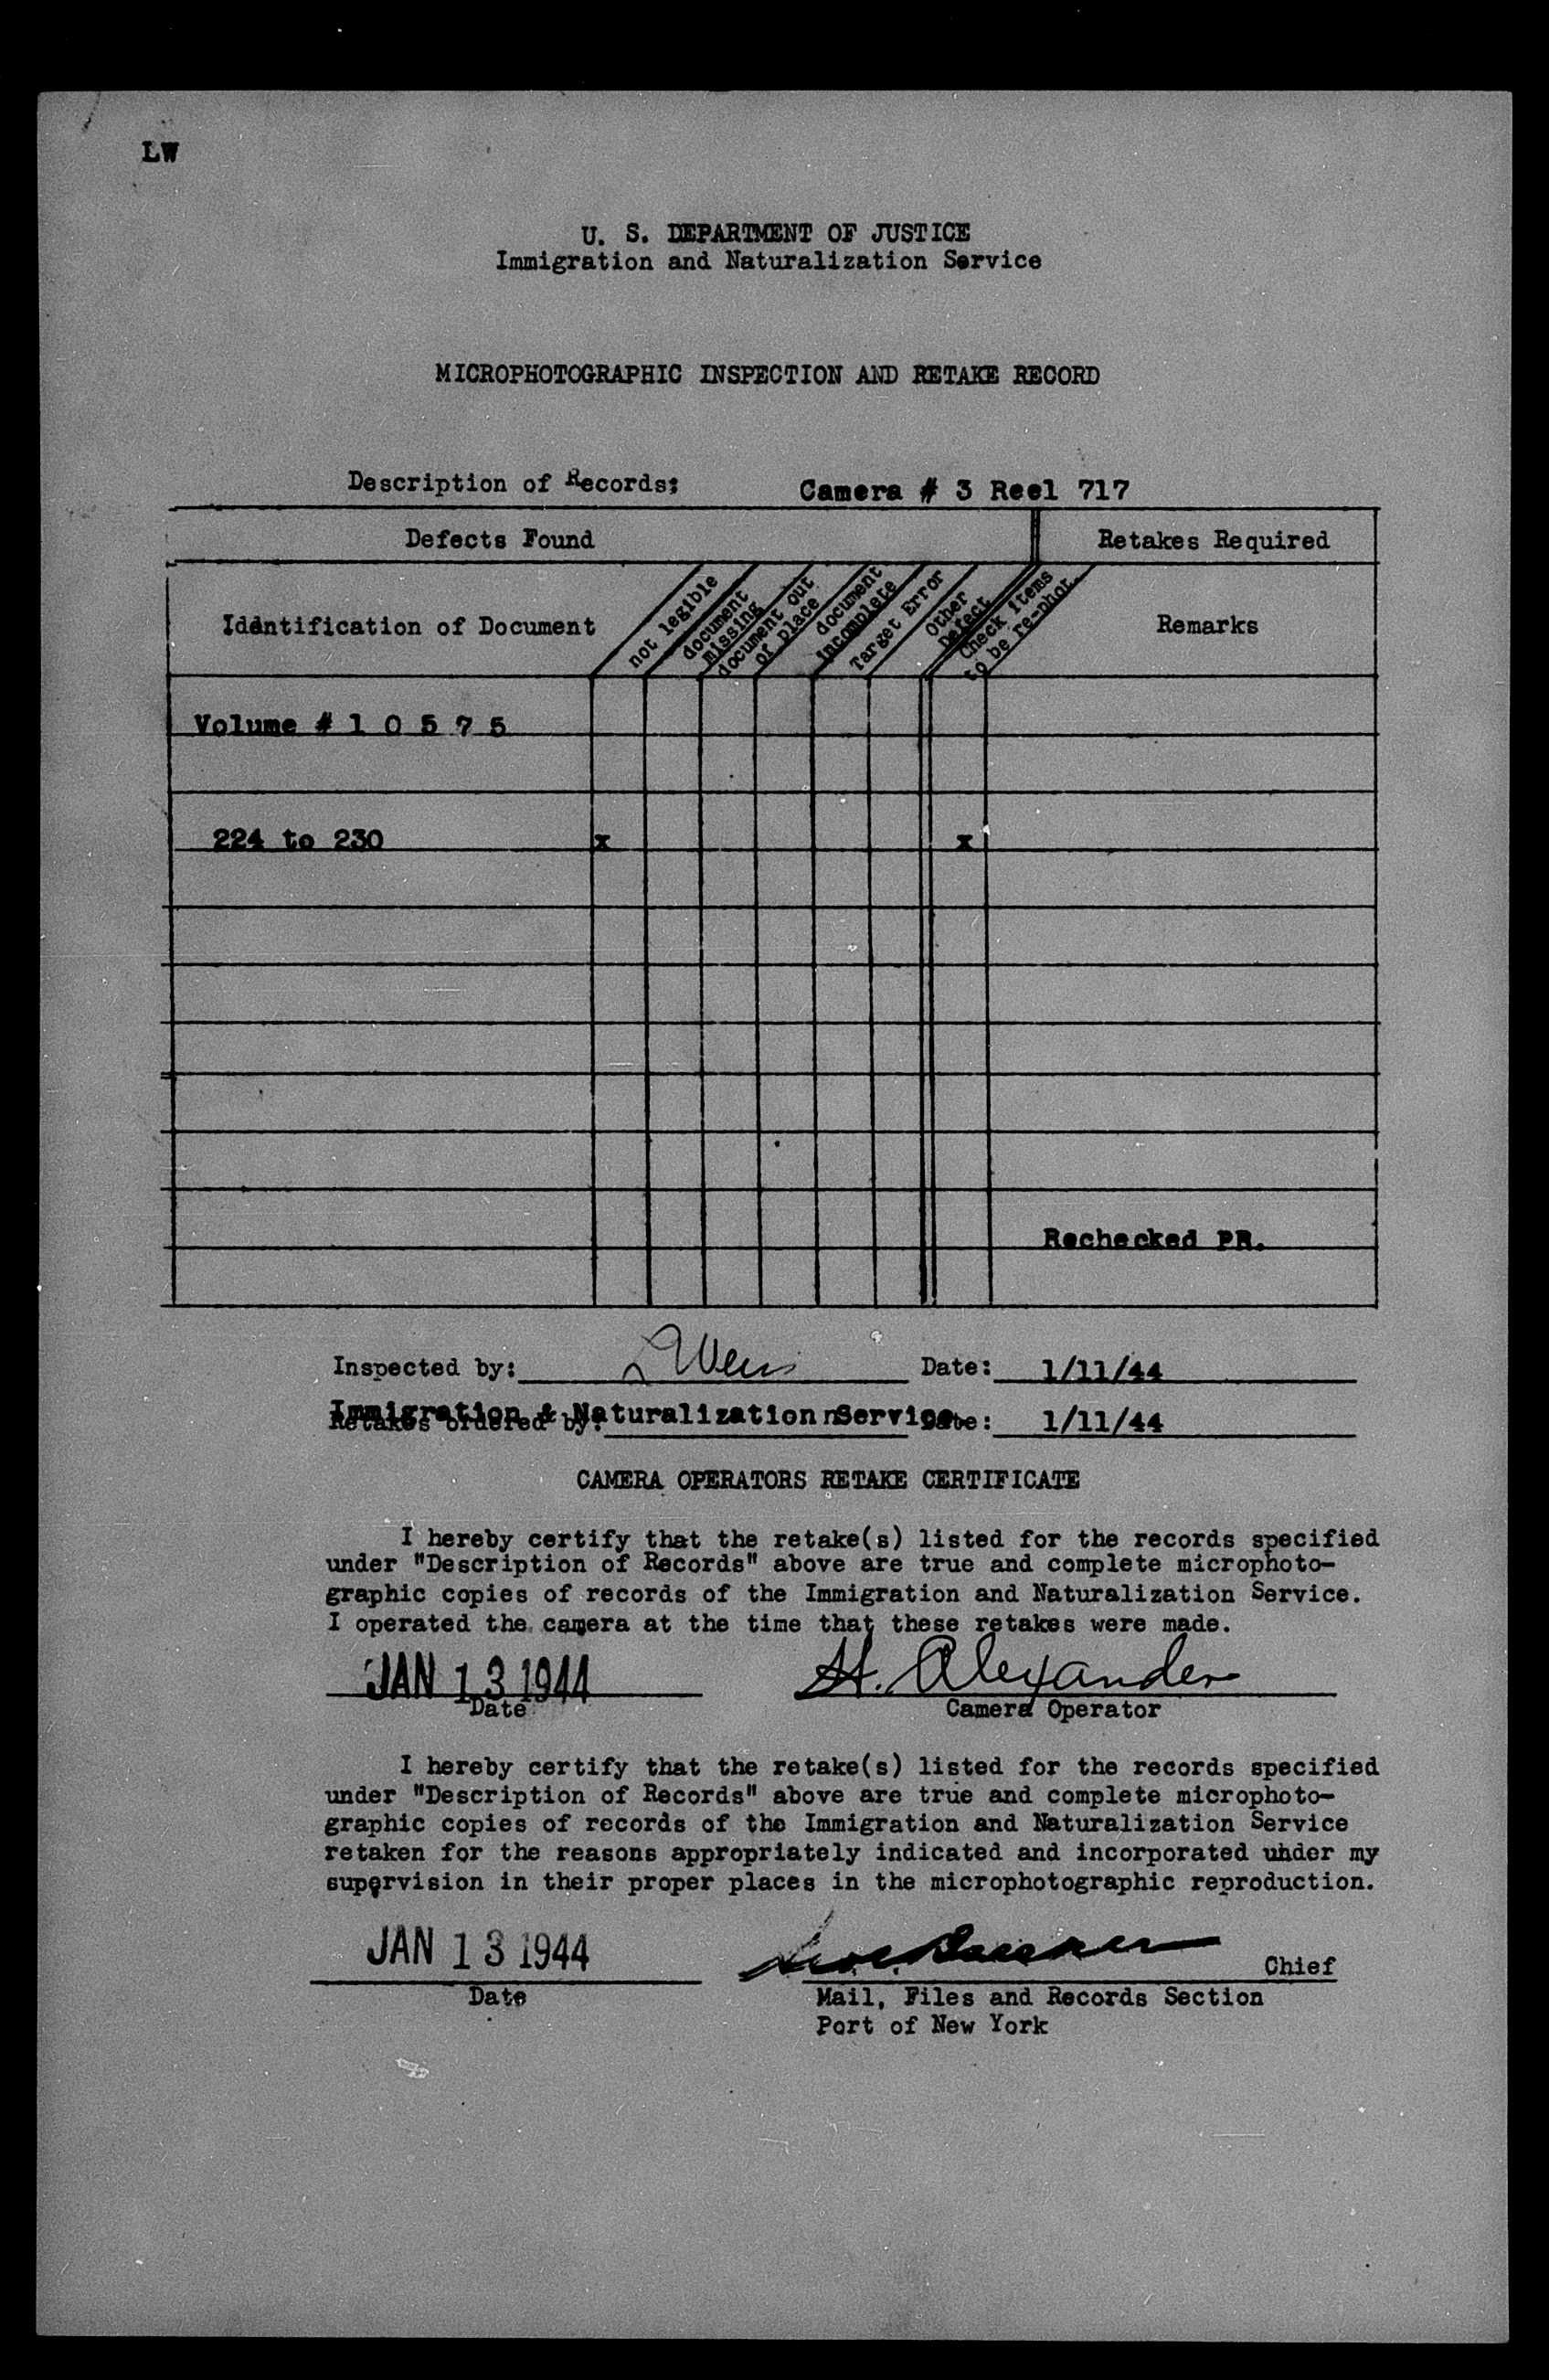 LW
U. S. DEPARTMENT OF JUSTICE
Immigration and Naturalization Service
MICROPHOTOGRAPHIC INSPECTION AND RETAKE RECORD
Description of Records: Camera # 3 Reel 717
Defects Found Retakes Required
Identification of Document
not legible
document
missing
document out
of place
document
incomplete
Target Error
Other
Defect
Check items
to be re-phot.
Remarks
Volume # 1 0 5 7 5
224 to 230 x x
Rechecked PR.
Inspected by: Date: 1/11/44
Immigration & Naturalization Service
Retakes ordered by: Date: 1/11/44
CAMERA OPERATORS RETAKE CERTIFICATE
I hereby certify that the retake(s) listed for the records specified
under "Description of Records" above are true and complete microphoto-
graphic copies of records of the Immigration and Naturalization Service.
I operated the camera at the time that these retakes were made.
JAN 13 1944 H. Alexander
Date Camera Operator
I hereby certify that the retake(s) listed for the records specified
under "Description of Records" above are true and complete microphoto-
graphic copies of records of the Immigration and Naturalization Service
retaken for the reasons appropriately indicated and incorporated under my
supervision in their proper places in the microphotographic reproduction.
JAN 13 1944 Chief
Date Mail, Files and Records Section
Port of New York